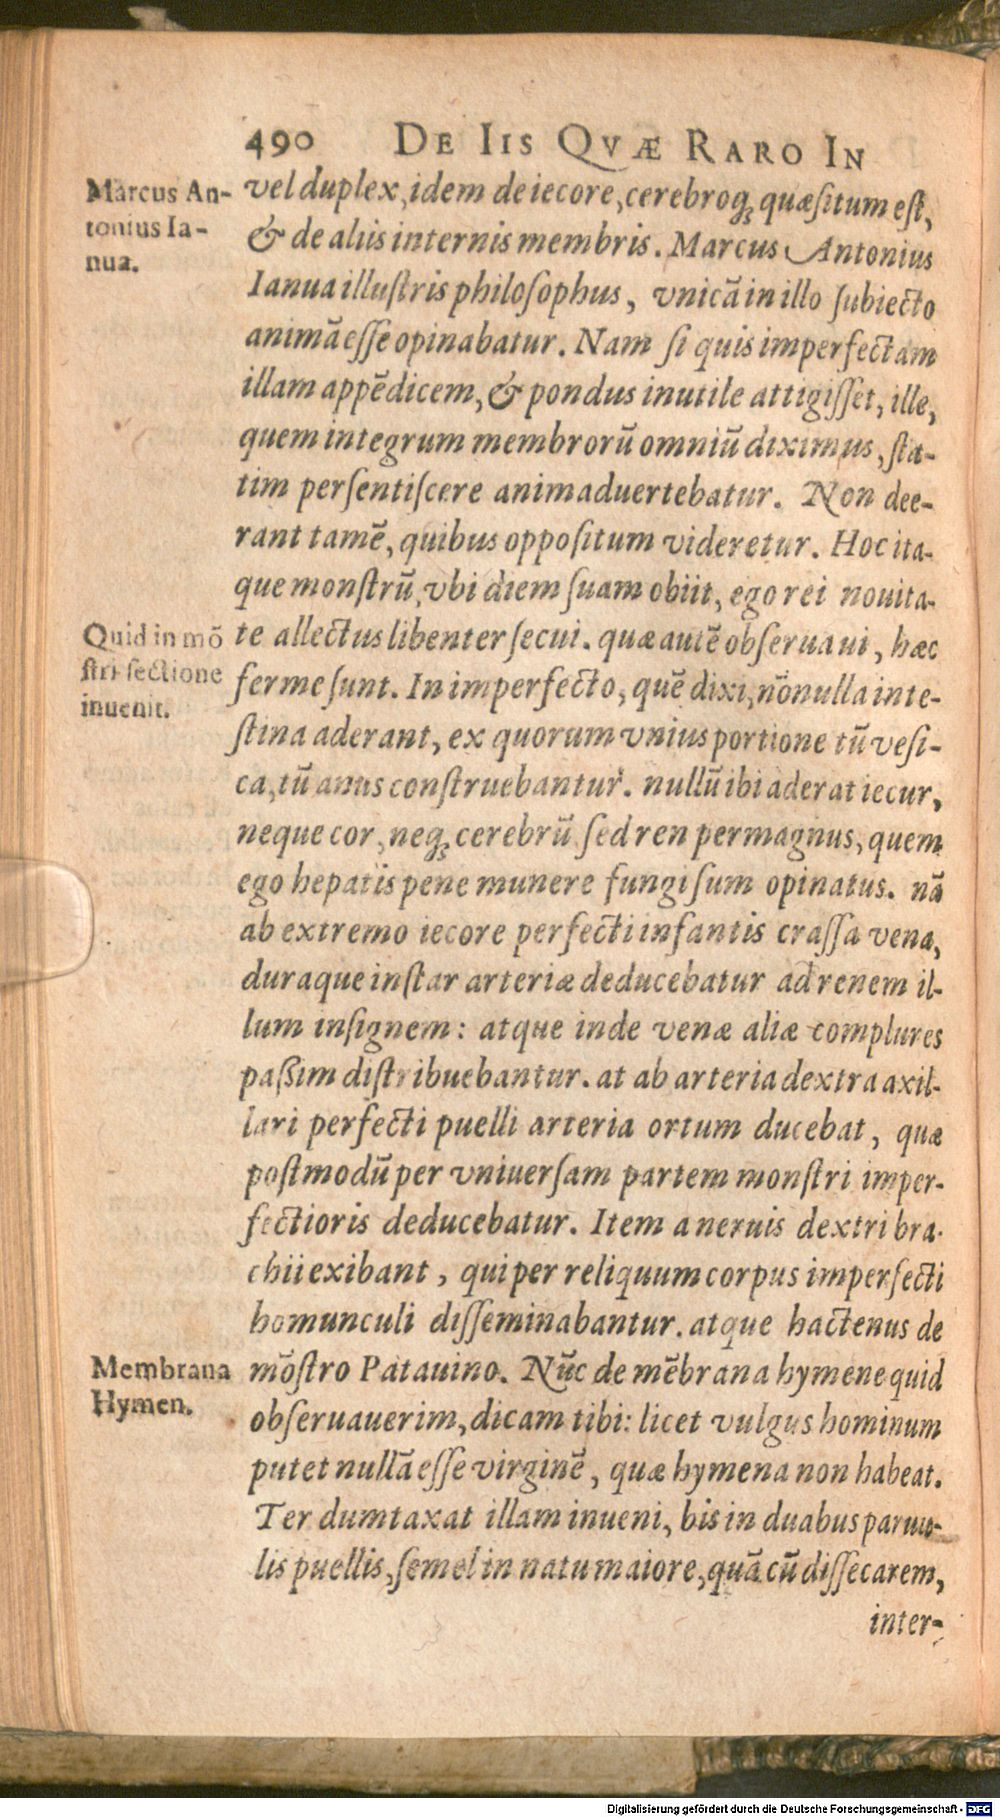 490 DE IIS QVÆ RARO IN
Marcus An-
tonius Ia-
nua.
vel duplex, idem de iecore, cerebroq́ꝫ quæsitum est,
& de aliis internis membris. Marcus Antonius
Ianua illustris philosophus, vnicā in illo subiecto
animā esse opinabatur. Nam si quis imperfectam
illam appēdicem, & pondus inutile attigisset, ille,
quem integrum membrorū omniū diximus, sta-
tim persentiscere animaduertebatur. Non dee-
rant tamē, quibus oppositum videretur. Hoc ita-
que monstrū, vbi diem suam obiit, ego rei nouita-
Quid in mō
stri sectione
inuenit.
te allectus libenter secui. quæ autē obseruaui, hæc
ferme sunt. In imperfecto, quē dixi, nōnulla inte-
stina aderant, ex quorum vnius portione tū vesi-
ca, tū anus construebantur. nullū ibi aderat iecur,
neque cor, neqꝫ cerebrū sed ren permagnus, quem
ego hepatis pene munere fungi sum opinatus. nā
ab extremo iecore perfecti infantis crassa vena,
duraque instar arteriæ deducebatur ad renem il-
lum insignem: atque inde venæ aliæ complures
passim distribuebantur. at ab arteria dextra axil-
lari perfecti puelli arteria ortum ducebat, quæ
postmodū per vniuersam partem monstri imper-
fectioris deducebatur. Item a neruis dextri bra-
chii exibant, qui per reliquum corpus imperfecti
homunculi disseminabantur. atque hactenus de
Membrana
Hymen.
mōstro Patauino. Nūc de mēbrana hymene quid
obseruauerim, dicam tibi: licet vulgus hominum
putet nullā esse virginē, quæ hymena non habeat.
Ter dumtaxat illam inueni, bis in duabus paruu-
lis puellis, semel in natu maiore, quā cū dissecarem,
inter-
Digitalisierung gefördert durch die Deutsche Forschungsgemeinschaft - DFG